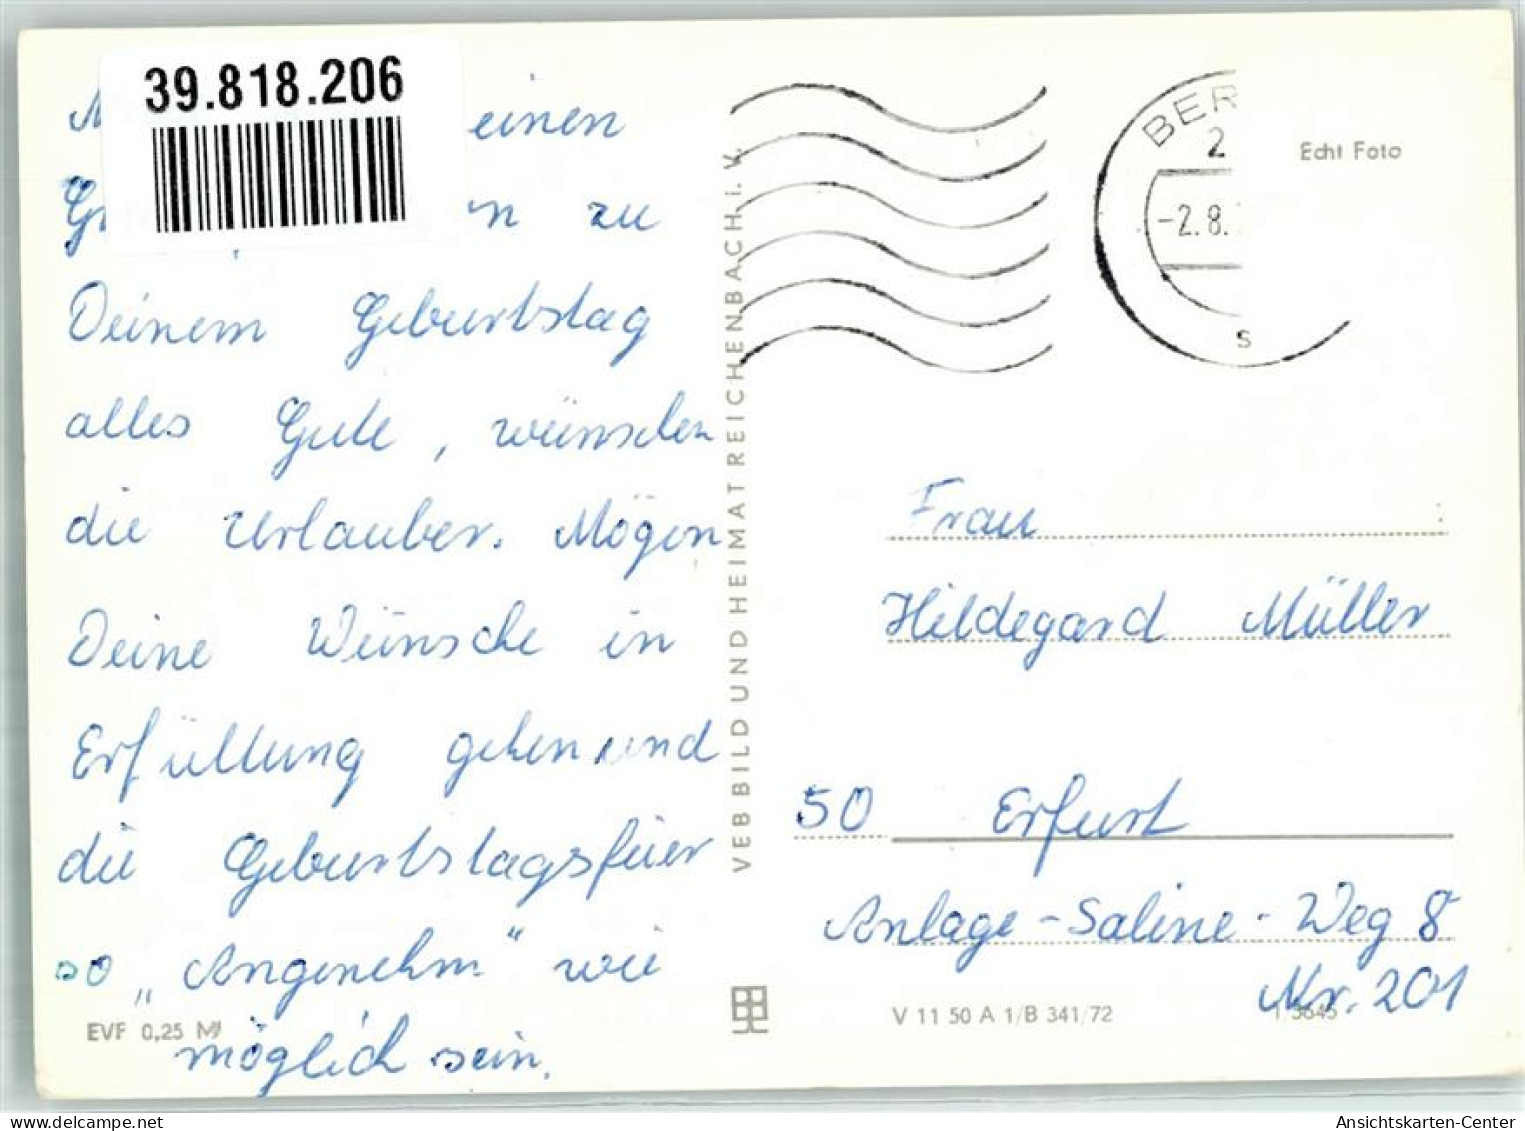 39.818.206
einen
zu
Deinem Geburtstag
alles Gute, wünschen
die Urlauber. Mögen
Deine Wünsche in
Erfüllung gehen und
die Geburtstagsfeier
so „Angenehm“ wie
möglich sein.
EVF 0,25 M
VEB BILD UND HEIMAT REICHENBACH i. V.
BER
2
-2.8.
s
Echt Foto
Frau
Hildegard Müller
50 Erfurt
Anlage-Saline-Weg 8
Nr. 201
V 11 50 A 1/B 341/72
Ansichtskarten-Center